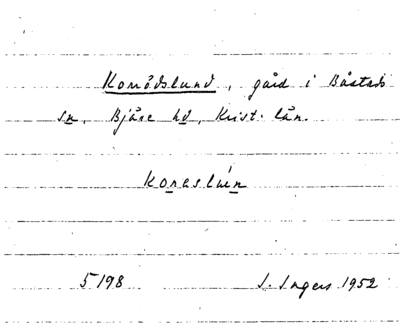 Komödslund, gård i Båstads
sn, Bjäre hd, Krist. län.
Koneslún
5198 I. Ingers 1952